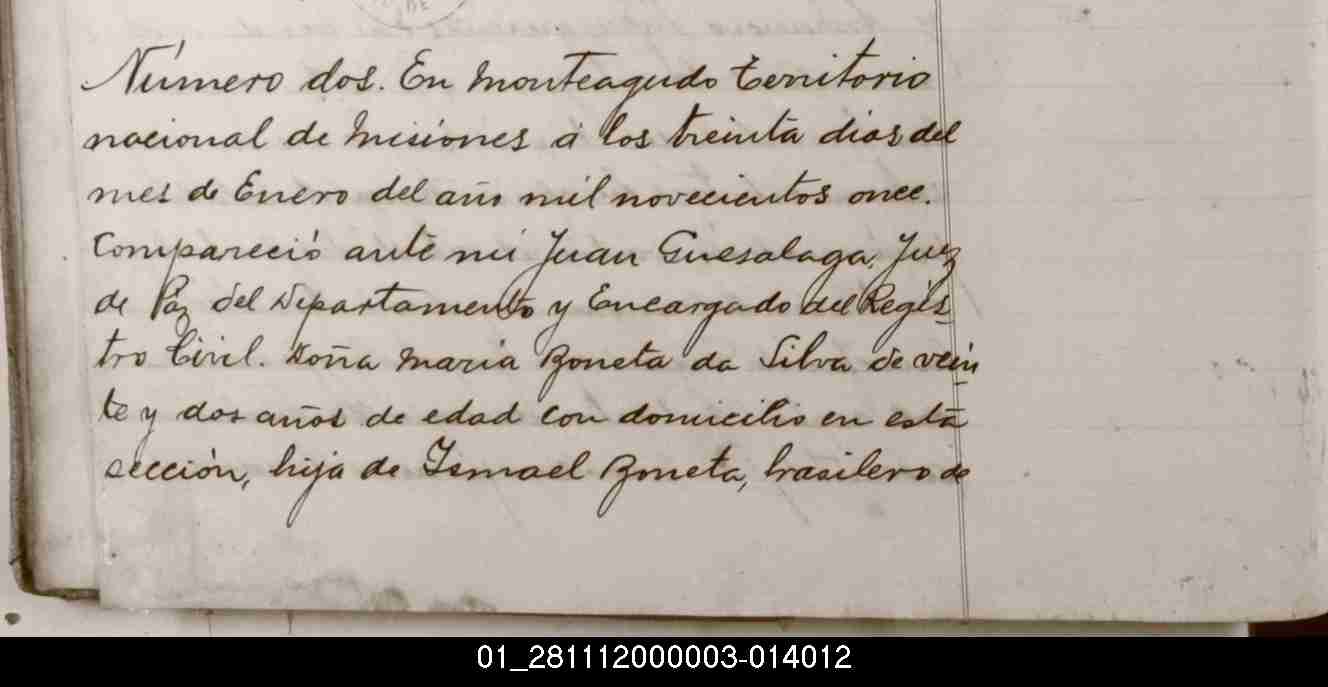 Número dos. En Monteagudo territorio
nacional de Misiones á los treinta dias del
mes de Enero del año mil novecientos once.
Compareció ante mi Juan Guesalaga, Juez
de Paz del Departamento y Encargado del Regis-
tro Civil. Doña Maria Boneta da Silva de vein-
te y dos años de edad con domicilio en esta
sección, hija de Ismael Boneta, brasilero de
01_281112000003-014012